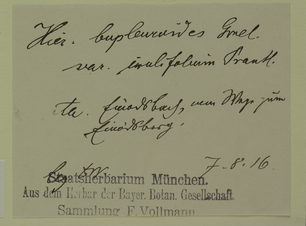 Hier. bupleuroides Gmel.
var. inulifolium Prantl.
Einödsbach, vom Wege zum
Einödsberg.
7.8.16.
Staatsherbarium München.
Aus dem Herbar der Bayer. Botan. Gesellschaft.
Sammlung F. Vollmann